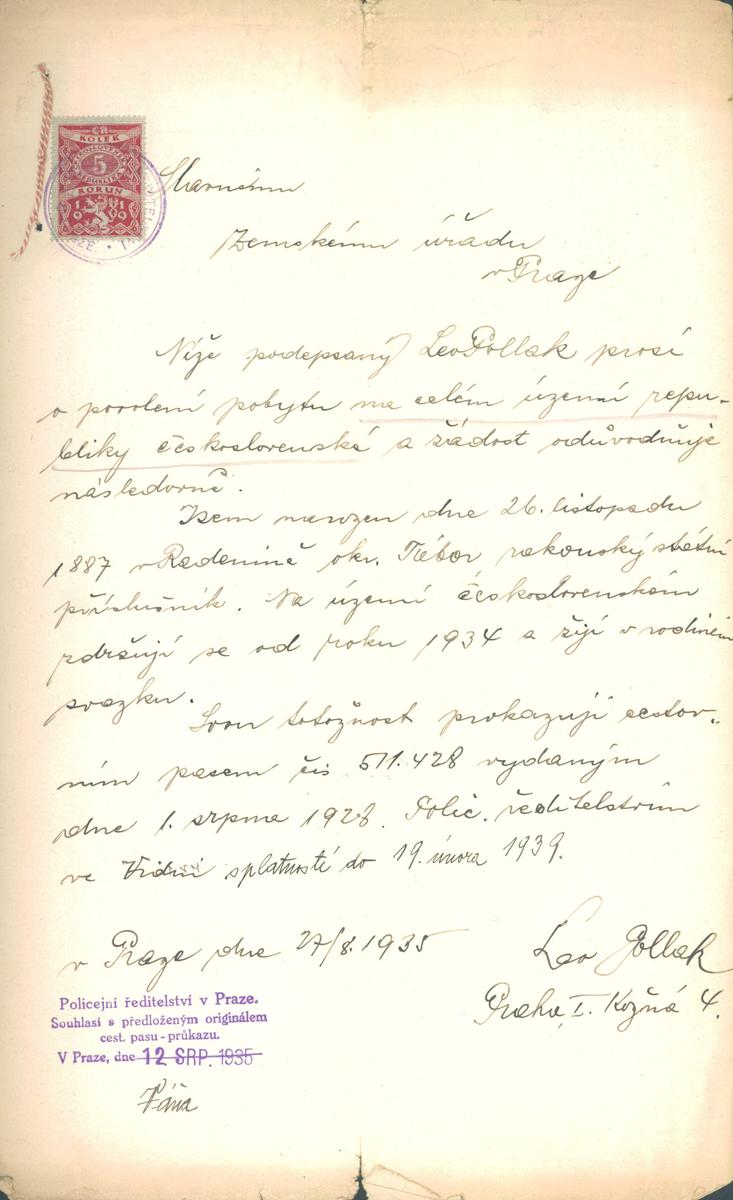 ČR
KOLEK
5
KORUN
1919
Slavnému
Zemskému úřadu
v Praze
Níže podepsaný Leo Pollak prosí
o povolení pobytu na celém území repu-
bliky československé a žádost odůvodňuje
následovně.
Jsem narozen dne 26. listopadu
1887 v Radeníně okr. Tábor rakouský státní
příslušník. Na území československém
zdržuji se od roku 1934 a žiji v rodinném
svazku.
Svou totožnost prokazuji cestov-
ním pasem čís 511.428 vydaným
dne 1. srpna 1928. Polic. ředitelstvím
ve Vídni splatností do 19. února 1939.
v Praze dne 27/8. 1935
Leo Pollak
Praha, I. Kožná 4.
Policejní ředitelství v Praze.
Souhlasí s předloženým originálem
cest. pasu-průkazu.
V Praze, dne 12. SRP. 1935
Váňa